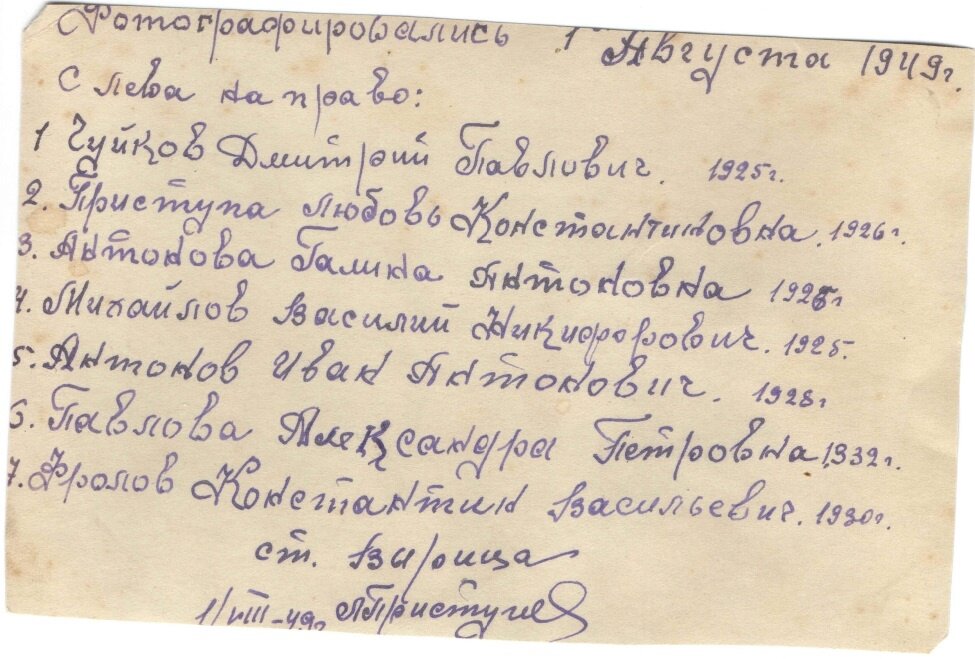 Фотографировались 1 Августа 1949 г.
С лева на право:
1 Чуйков Дмитрий Павлович. 1925 г.
2. Приступа Любовь Константиновна. 1926 г.
3. Антонова Галина Антоновна 1925 г
4. Михайлов Василий Никифорович. 1925.
5. Антонов Иван Антонович. 1928 г
6. Павлова Александра Петровна 1932 г.
7. Фролов Константин Васильевич. 1930 г.
ст. Вырица
1/VIII-49 г ЛПриступа